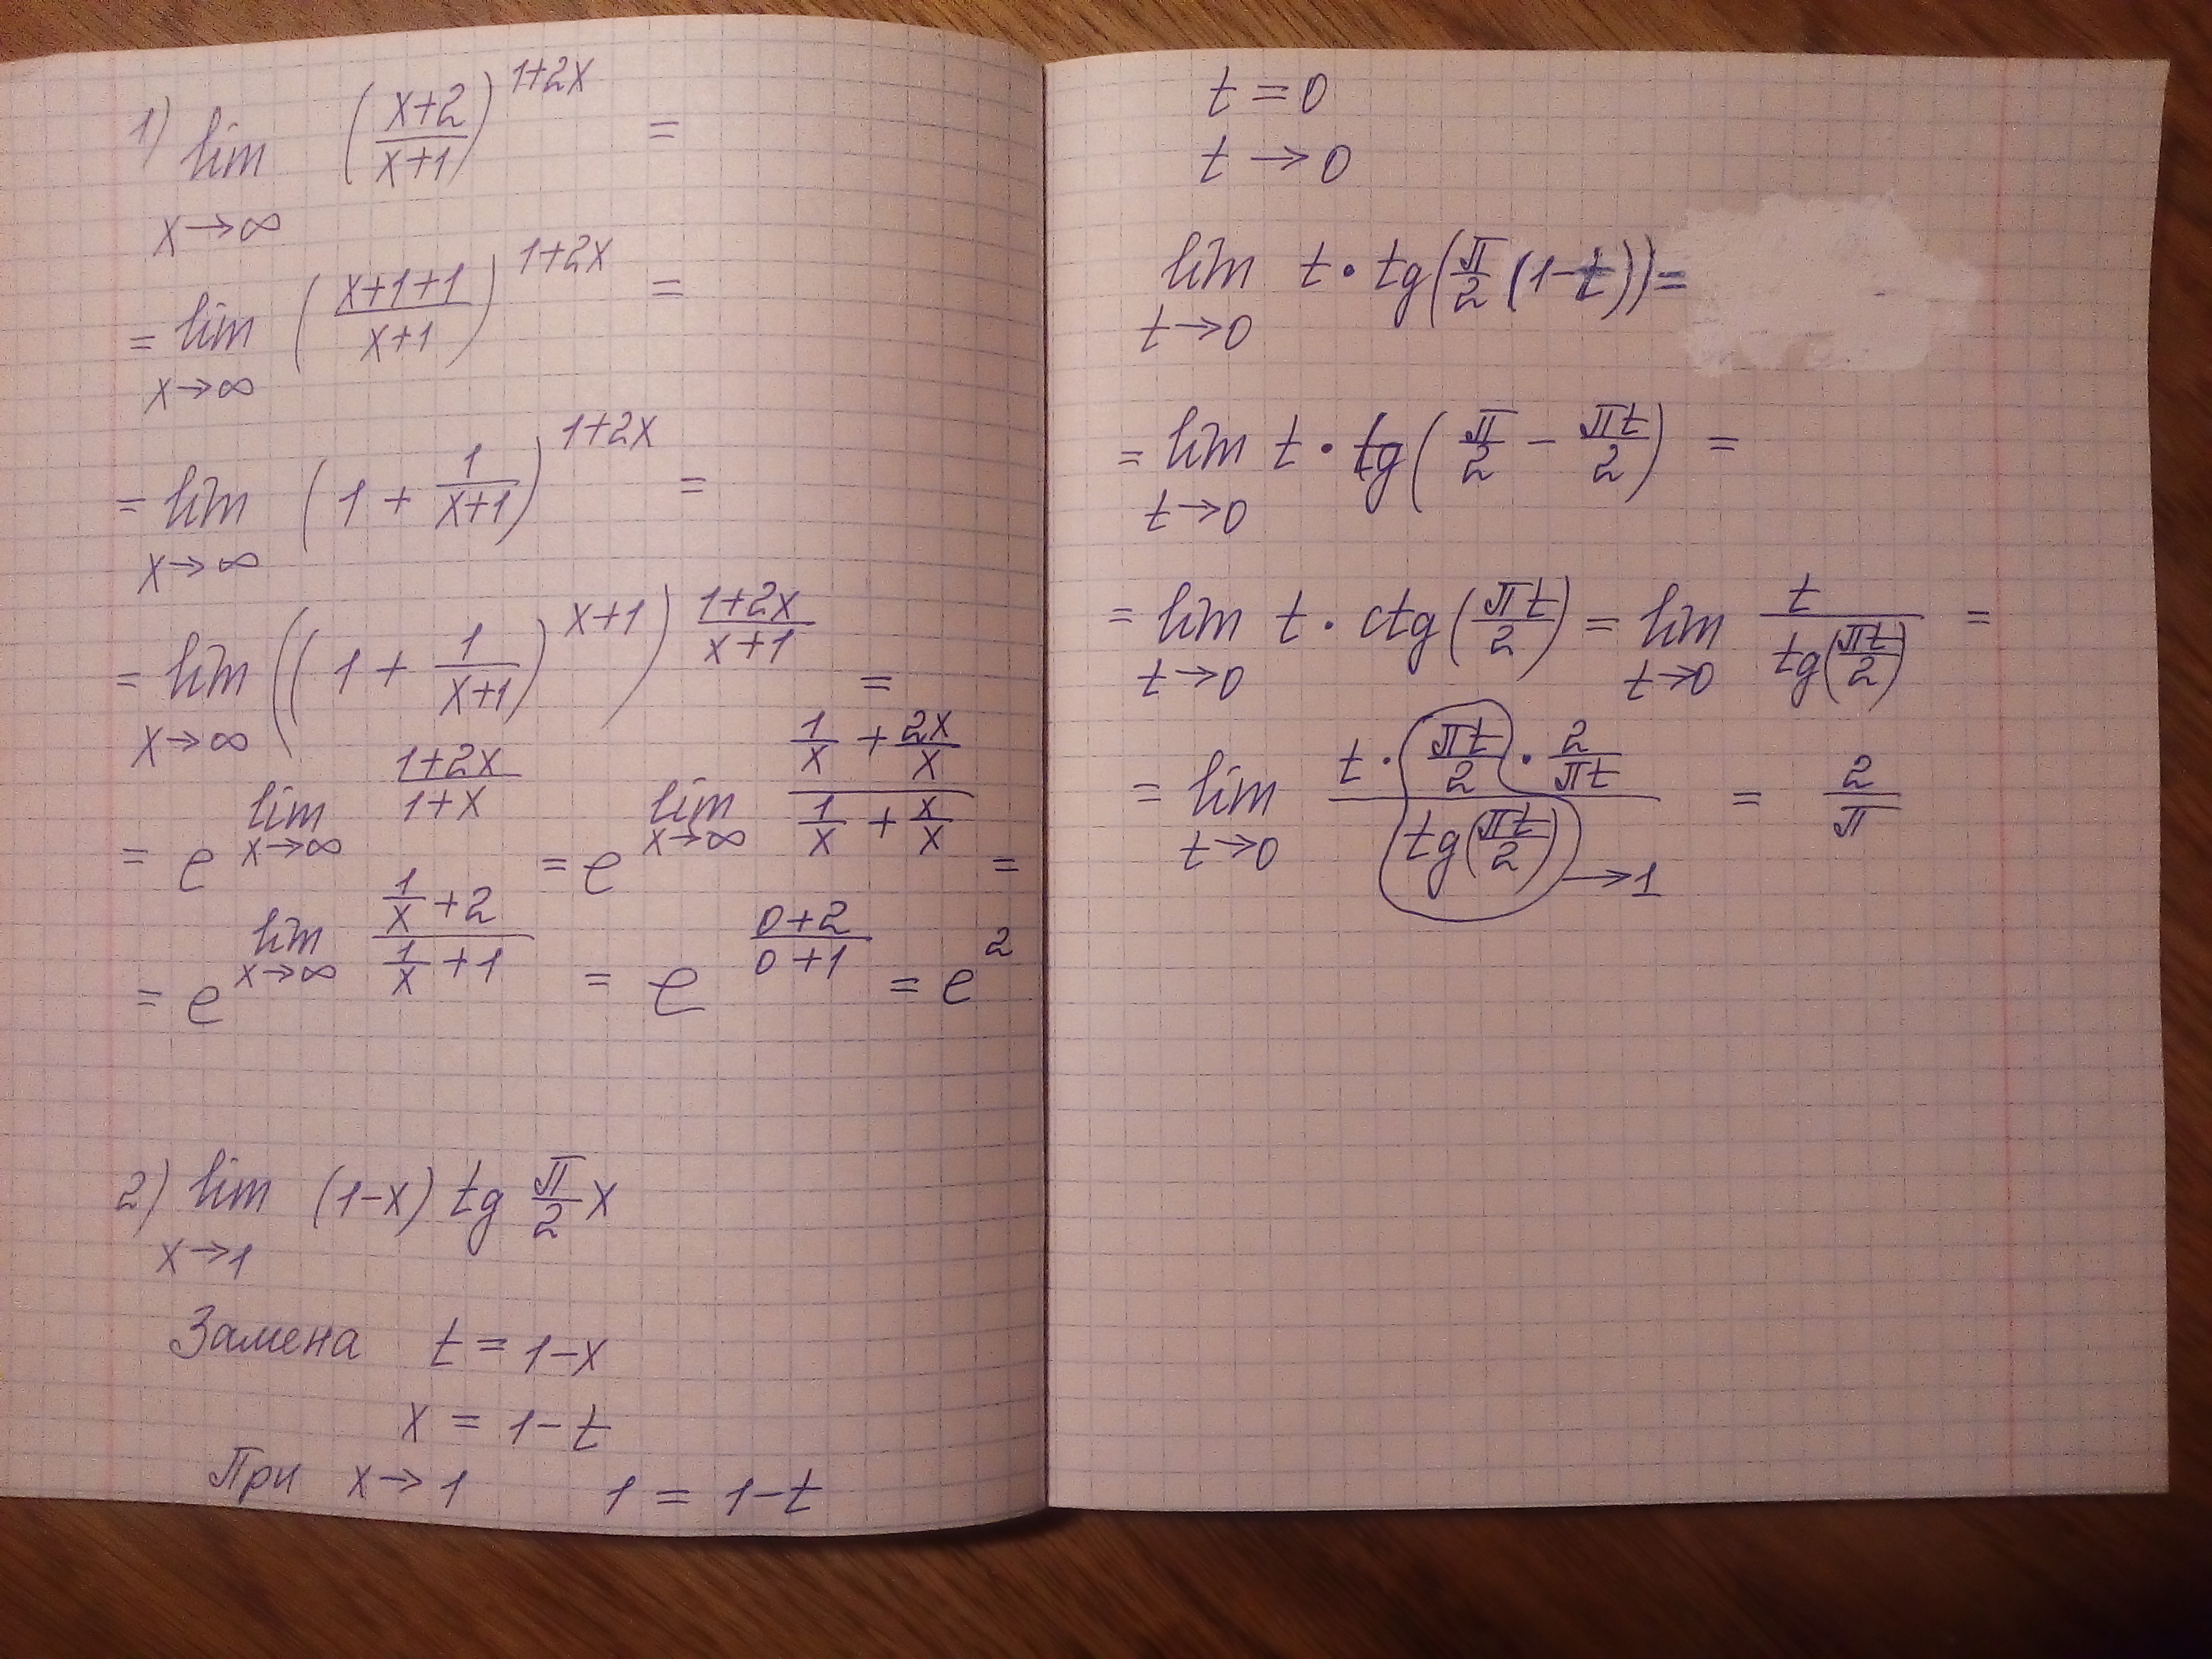 1) lim x→∞ ((x+2)/(x+1))^(1+2x) =
= lim x→∞ ((x+1+1)/(x+1))^(1+2x) =
= lim x→∞ (1 + 1/(x+1))^(1+2x) =
= lim x→∞ ((1 + 1/(x+1))^(x+1))^((1+2x)/(x+1)) =
= e^(lim x→∞ (1+2x)/(1+x)) = e^(lim x→∞ (1/x + 2x/x)/(1/x + x/x)) =
= e^(lim x→∞ (1/x + 2)/(1/x + 1)) = e^((0+2)/(0+1)) = e^2
2) lim x→1 (1-x) tg π/2 x
Замена t = 1-x
x = 1-t
При x→1 1 = 1-t
t = 0
t → 0
lim t→0 t · tg(π/2 (1-t)) =
= lim t→0 t · tg(π/2 - πt/2) =
= lim t→0 t · ctg(πt/2) = lim t→0 t/tg(πt/2) =
= lim t→0 (t · πt/2 · 2/πt)/tg(πt/2) →1 = 2/π